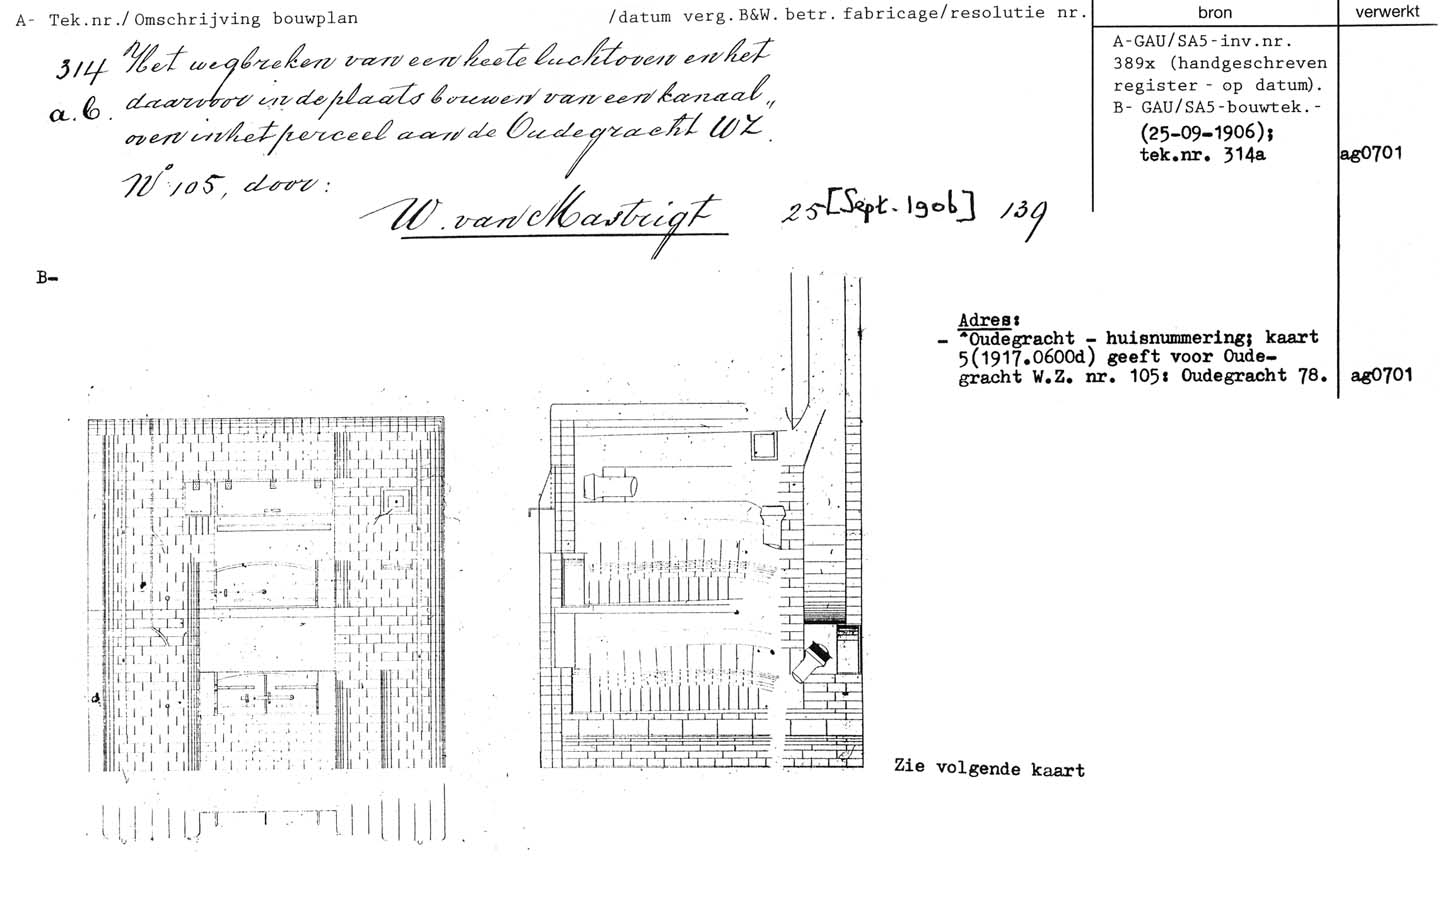 A- Tek.nr./Omschrijving bouwplan /datum verg.B&W. betr. fabricage/resolutie nr. bron verwerkt
314 Het wegbreken van een heete luchtoven en het
a.b. daarvoor in de plaats bouwen van een kanaal„
oven in het perceel aan de Oudegracht WZ.
No 105, door:
W. van Mastrigt 25 [Sept. 1906] 139
A-GAU/SA5-inv.nr.
389x (handgeschreven
register - op datum).
B- GAU/SA5-bouwtek.-
(25-09-1906);
tek.nr. 314a ag0701
B-
Adres:
- "Oudegracht - huisnummering; kaart
5(1917.0600d) geeft voor Oude-
gracht W.Z. nr. 105: Oudegracht 78. ag0701
Zie volgende kaart